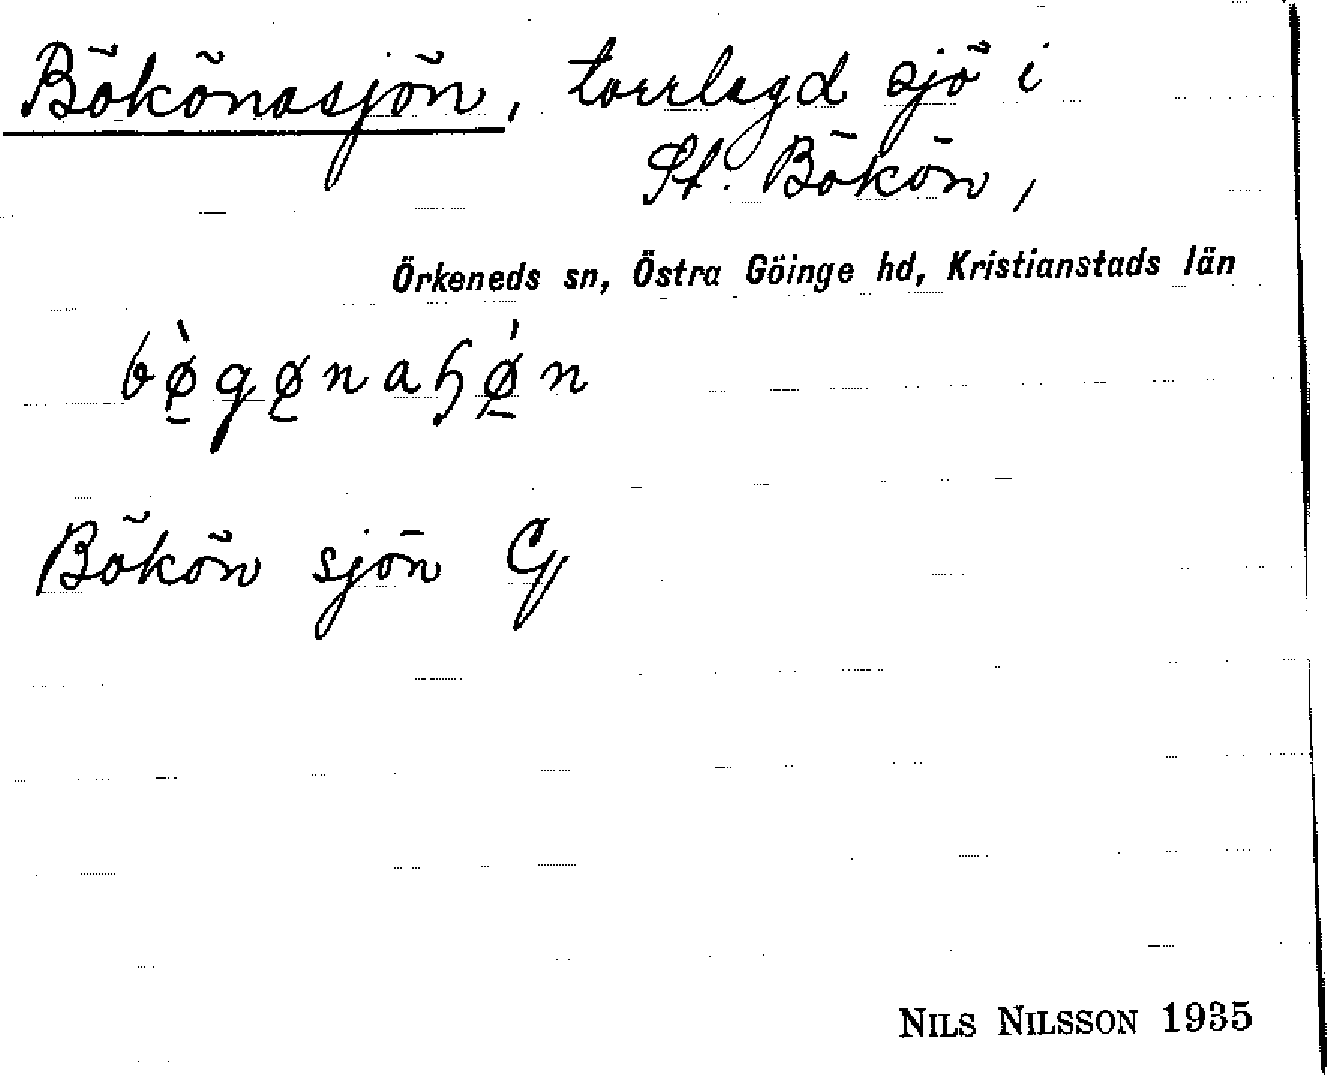 Bökönasjön, torrlagd sjö i
St. Bökön,
Örkeneds sn, Östra Göinge hd, Kristianstads län
bø̠̀gø̠naɧǿ̠n
Bökön sjön G
NILS NILSSON 1935